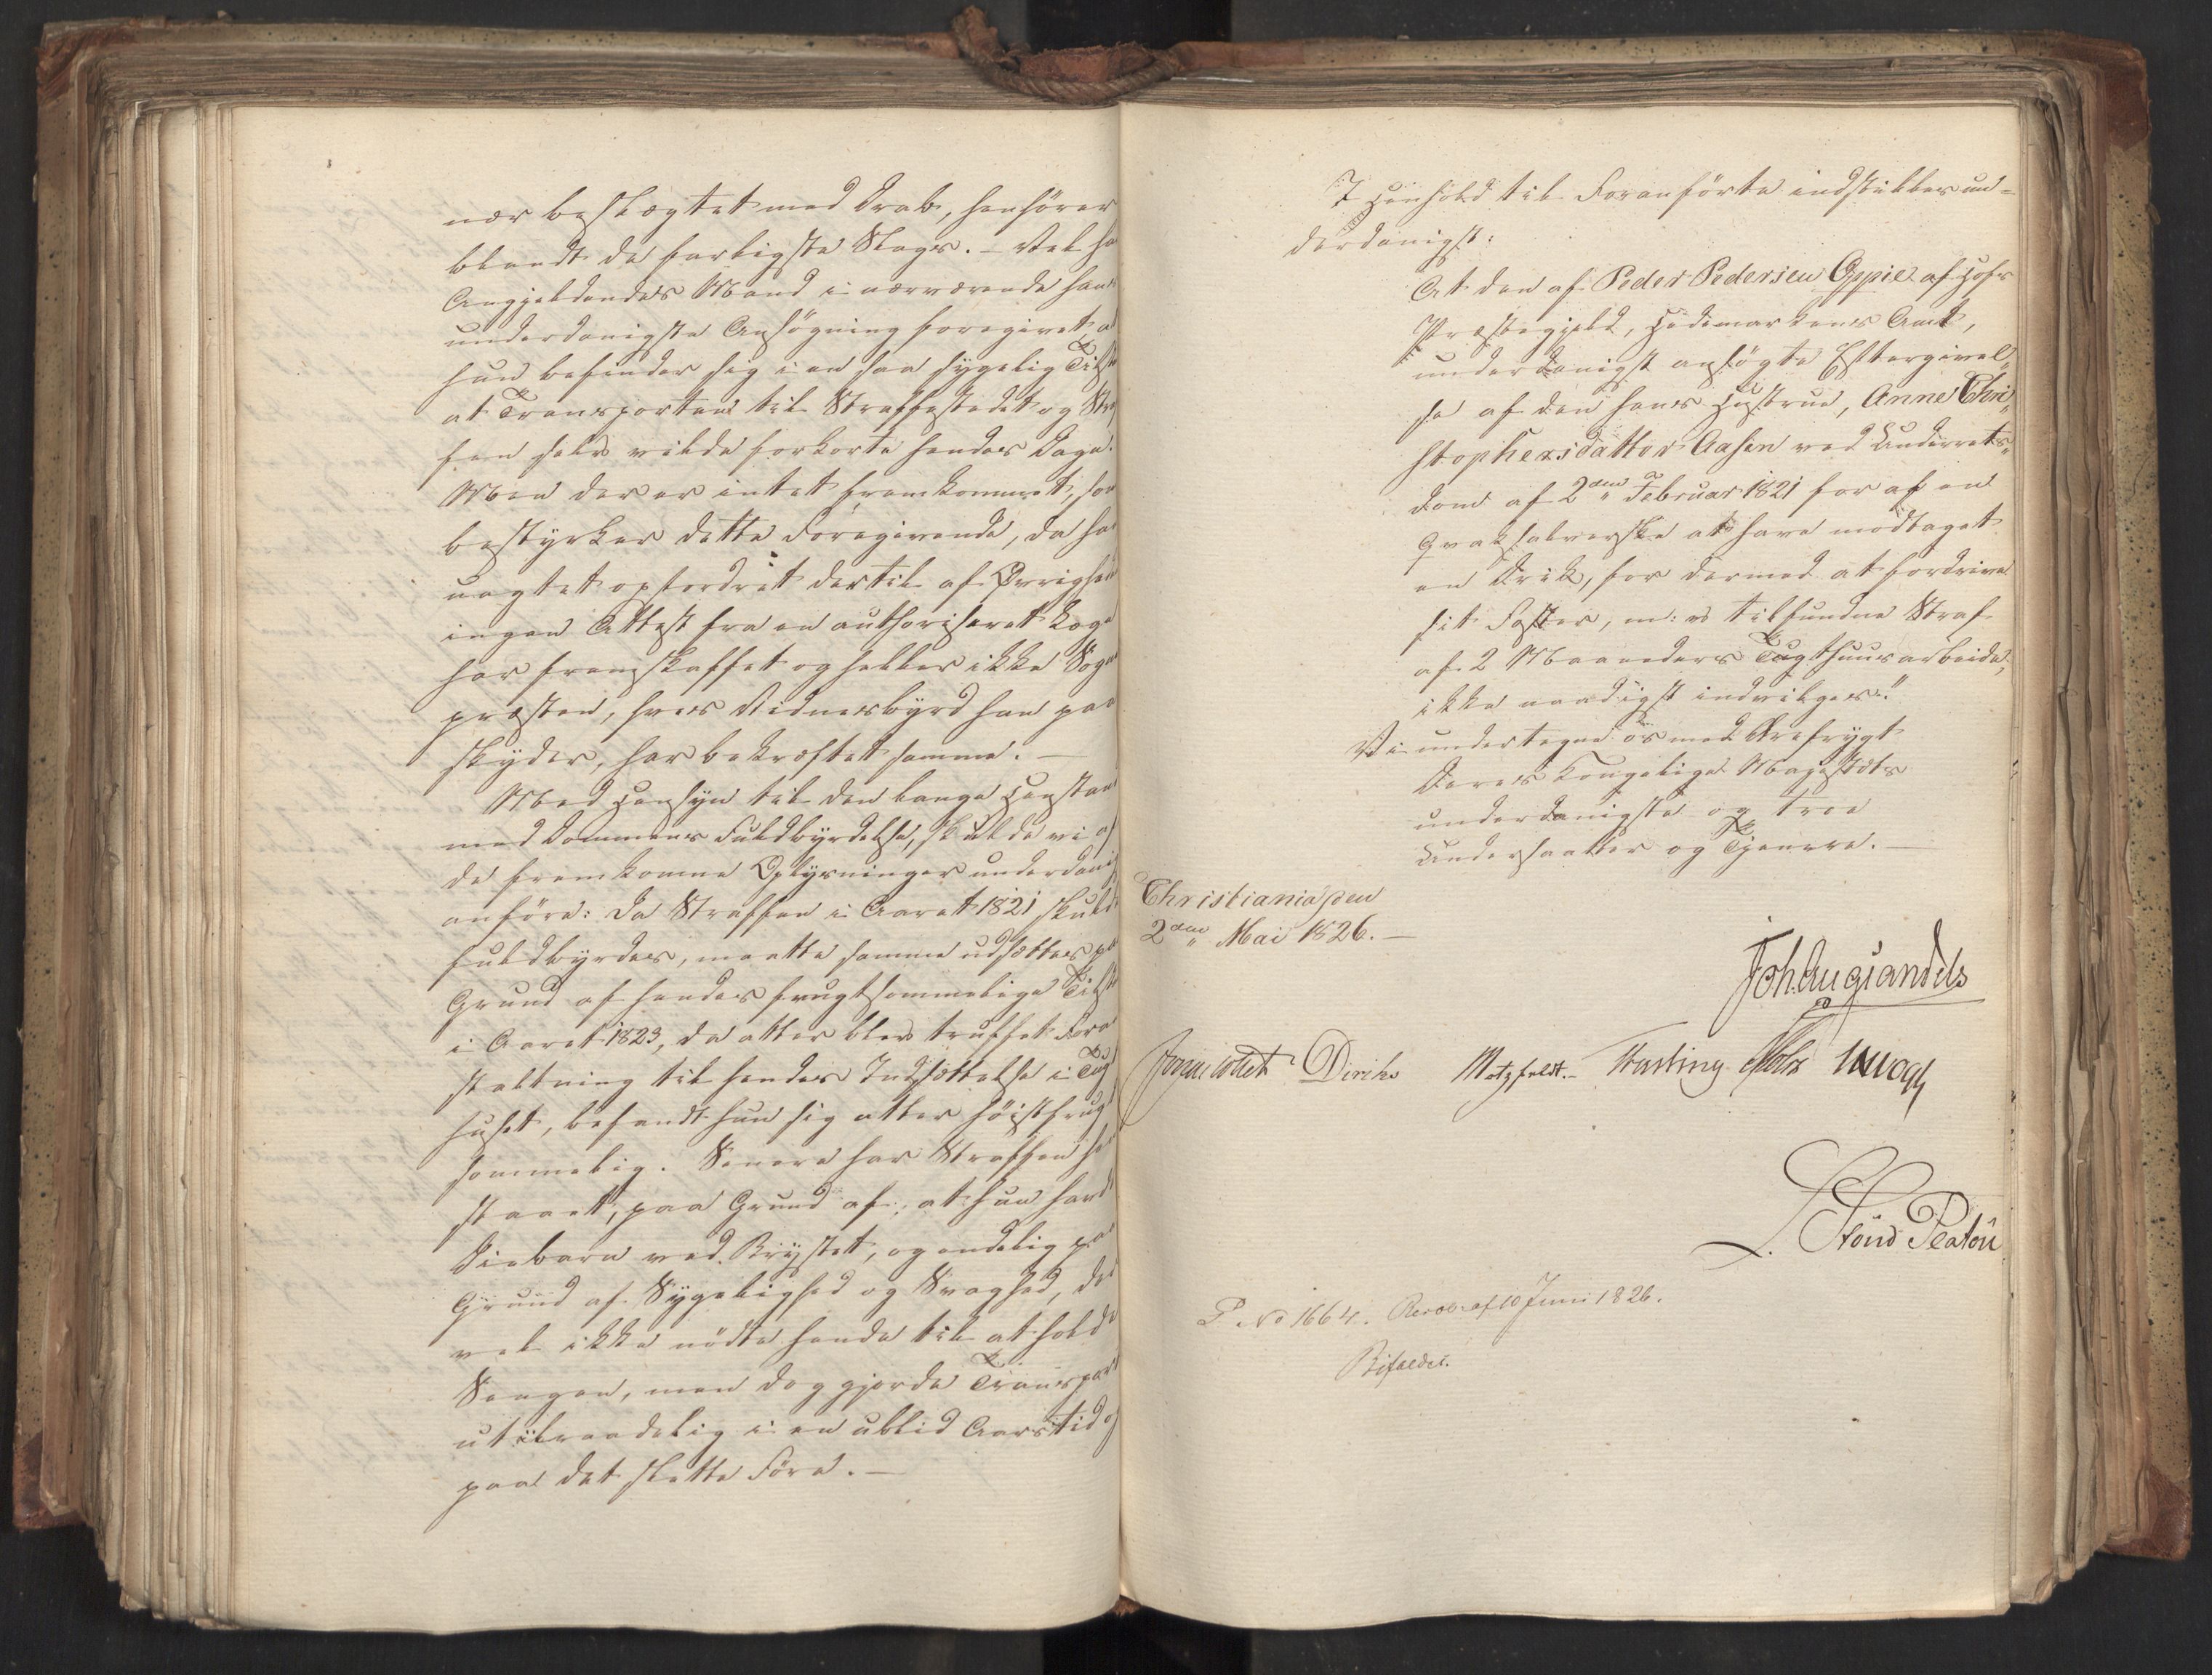 nær beslægtet med Drab, henhører
blandt de farligste Slags. – Vel ha
Angjeldendes Mand i nærværende hans
underdanigste Ansøgning foregivet, at
hun befinder sig i en saa sygelig Tilst
at Transporten til Straffestedet og Str
fen selv vilde forkorte hendes Dage.
Men der er intet fremkommet, som
bestyrker dette Foregivende, da ha
uagtet opfordret dertil af Øvrighed
ingen Attest fra en authoriseret Læge
har fremskaffet og heller ikke Sogne
præsten, hvis Vidnesbyrd han paa
skyder, har bekræftet samme. –
Med Hensyn til den lange Henstand
med Dommens Fuldbyrdelse, skulde vi af
de fremkomne Oplysninger underdanigst
anføre: Da Straffen i Aaret 1821 skulde
fuldbyrdes, maatte samme udsættes paa
Grund af hendes frugtsommelige Tilst
i Aaret 1823, da atter blev truffet Fora
staltning til hendes Indsættelse i Tugt
huset, befandt hun sig atter høist frugt
sommelig. Senere har Straffen hen
staaet, paa Grund af, at hun havde
Diebarn ved Brystet, og endelig paa
Grund af Sygelighed og Svaghed, der
vel ikke nødte hende til at holde
Sengen, men dog gjorde Transport
utilraadelig i en ublid Aarstid og
paa det slette Føre. –
I Henhold til Foranførte indstilles un-
derdanigst:
At den af Peder Pedersen Oppie af Hofs
Præstegjeld, Hedemarkens Amt,
underdanigst ansøgte Eftergivel-
se af den hans Hustrue, Anne Chri-
stophersdatter Aasen ved Underrets-
dom af 2den Februar 1821 for af en
Qvaksalverske at have modtaget
en Drik, for dermed at fordrive
sit Foster, m: v tilfundne Straf
af 2 Maaneders Tugthuusarbeide,
ikke naadigst indvilges."
Vi undertegne os med Ærefrygt
Deres Kongelige Majestæts
underdanigste og troe
Undersaatter og Tjenere. –
Christiania, den
2den Mai 1826. –
Joh. Aug Sandels
Jonas Collett Diriks Motzfeldt. – Fasting Holst JHVogt
L. Stoud Platou
P No 1664. Resol: af 10 Juni 1826.
Bifaldes.